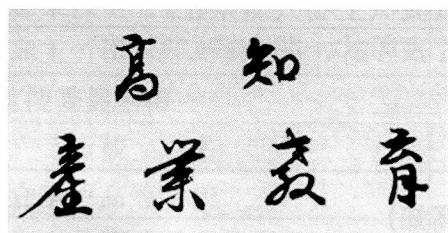 高知
産業教育